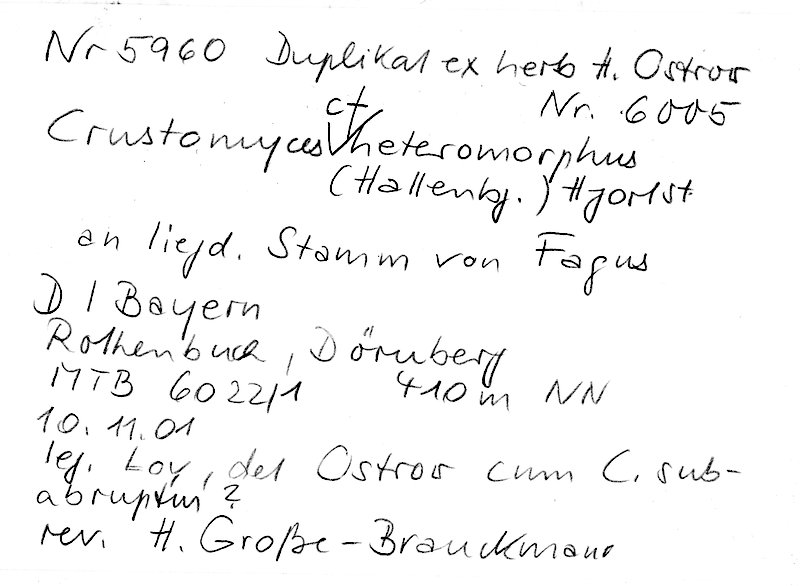 Nr 5960 Duplikat ex herb H. Ostrow
Nr. 6005
Crustomyces cf heteromorphus
(Hallenbg.) Hjortst
an liegd. Stamm von Fagus
D / Bayern
Rothenbuch, Dörnberg
MTB 6022/1 410 m NN
10.11.01
leg. Loy, det Ostrow cum C. sub-
abruptum?
rev. H. Große-Brauckmann